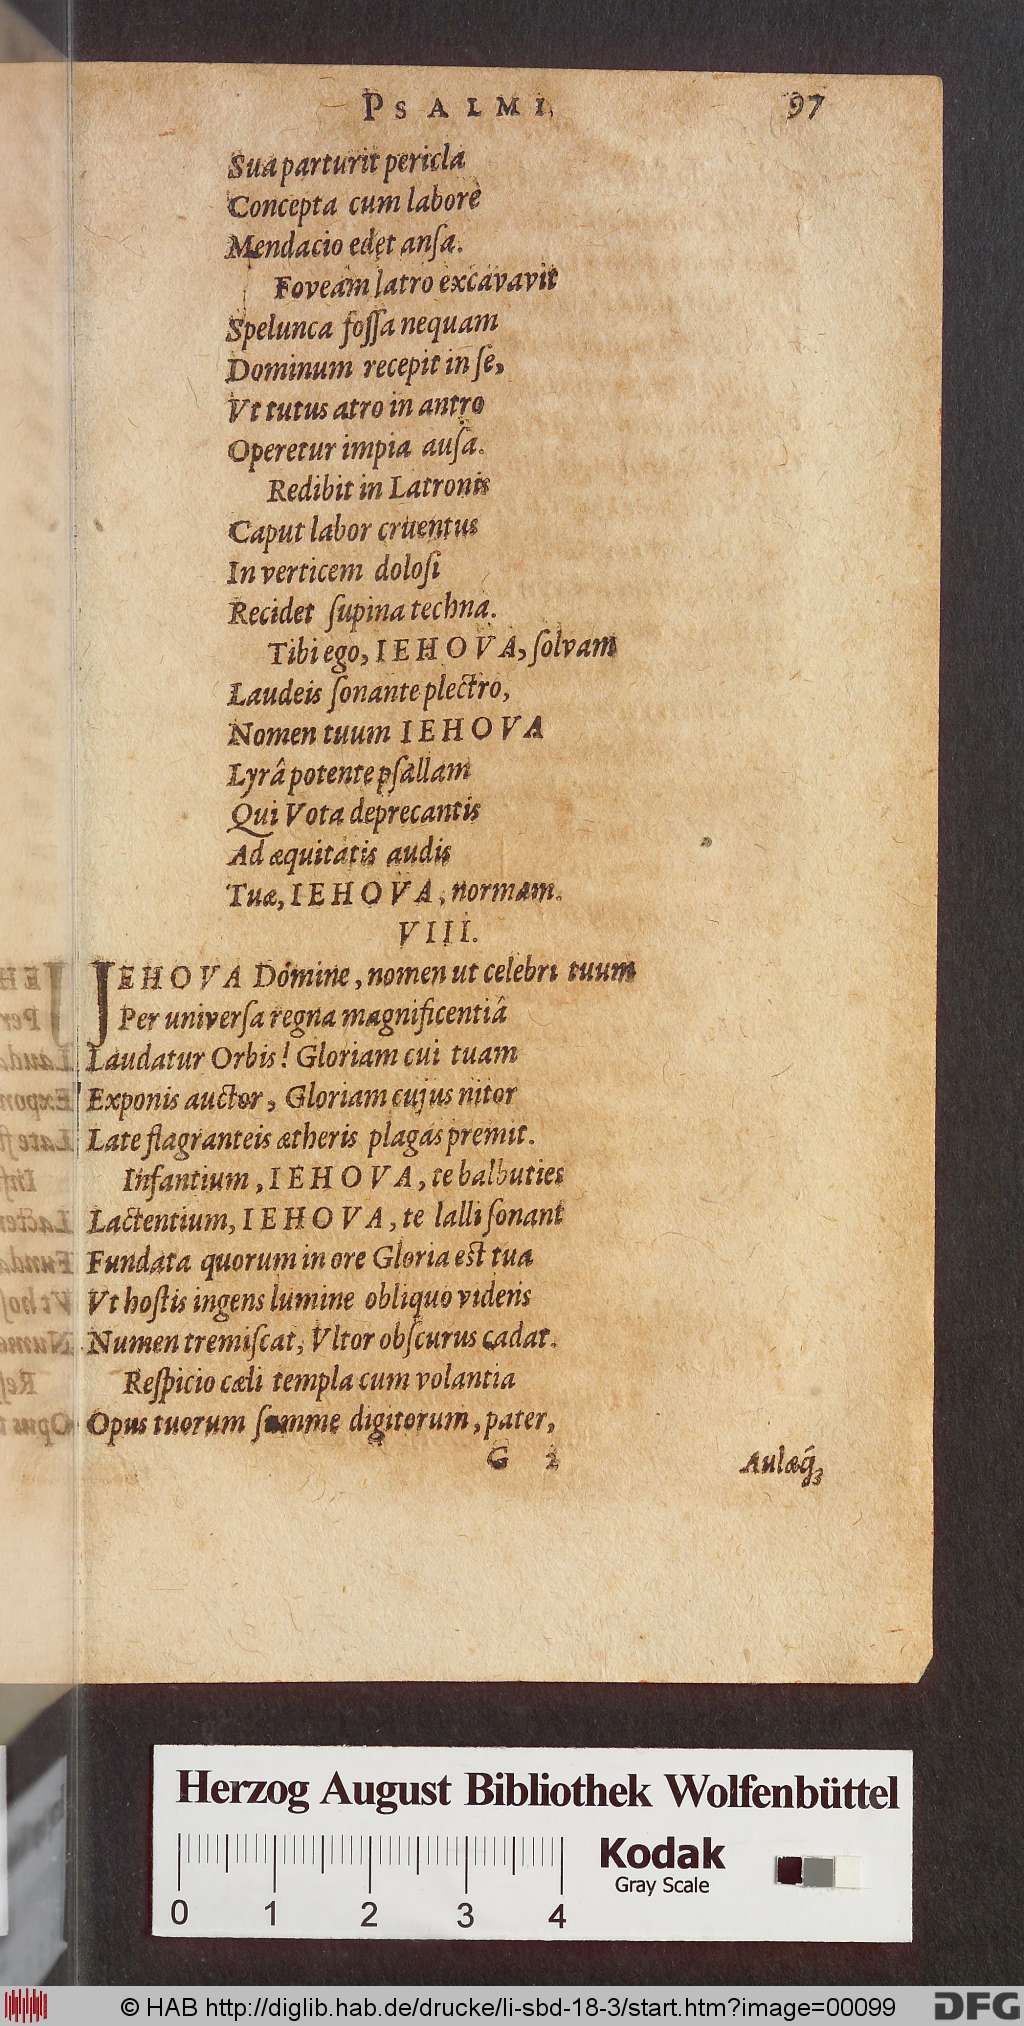 PSALMI. 97
Sua parturit pericla
Concepta cum labore
Mendacio edet ansa.
Foveam latro excavavit
Spelunca fossa nequam
Dominum recepit in se,
Vt tutus atro in antro
Operetur impia ausa.
Redibit in Latronis
Caput labor cruentus
In verticem dolosi
Recidet supina techna.
Tibi ego, IEHOVA, solvam
Laudeis sonante plectro,
Nomen tuum IEHOVA
Lyrâ potente psallam
Qui Vota deprecantis
Ad æquitatis audis
Tuæ, IEHOVA, normam.
VIII.
JEHOVA Domine, nomen ut celebri tuum
Per universa regna magnificentiâ
Laudatur Orbis! Gloriam cui tuam
Exponis auctor, Gloriam cujus nitor
Late flagranteis ætheris plagas premit.
Infantium, IEHOVA, te balbuties
Lactentium, IEHOVA, te lalli sonant
Fundata quorum in ore Gloria est tua
Vt hostis ingens lumine obliquo videns
Numen tremiscat, Vltor obscurus cadat.
Respicio cæli templa cum volantia
Opus tuorum summe digitorum, pater,
G 2 Aulæq́ꝫ
Herzog August Bibliothek Wolfenbüttel
0 1 2 3 4
Kodak
Gray Scale
© HAB http://diglib.hab.de/drucke/li-sbd-18-3/start.htm?image=00099
DFG